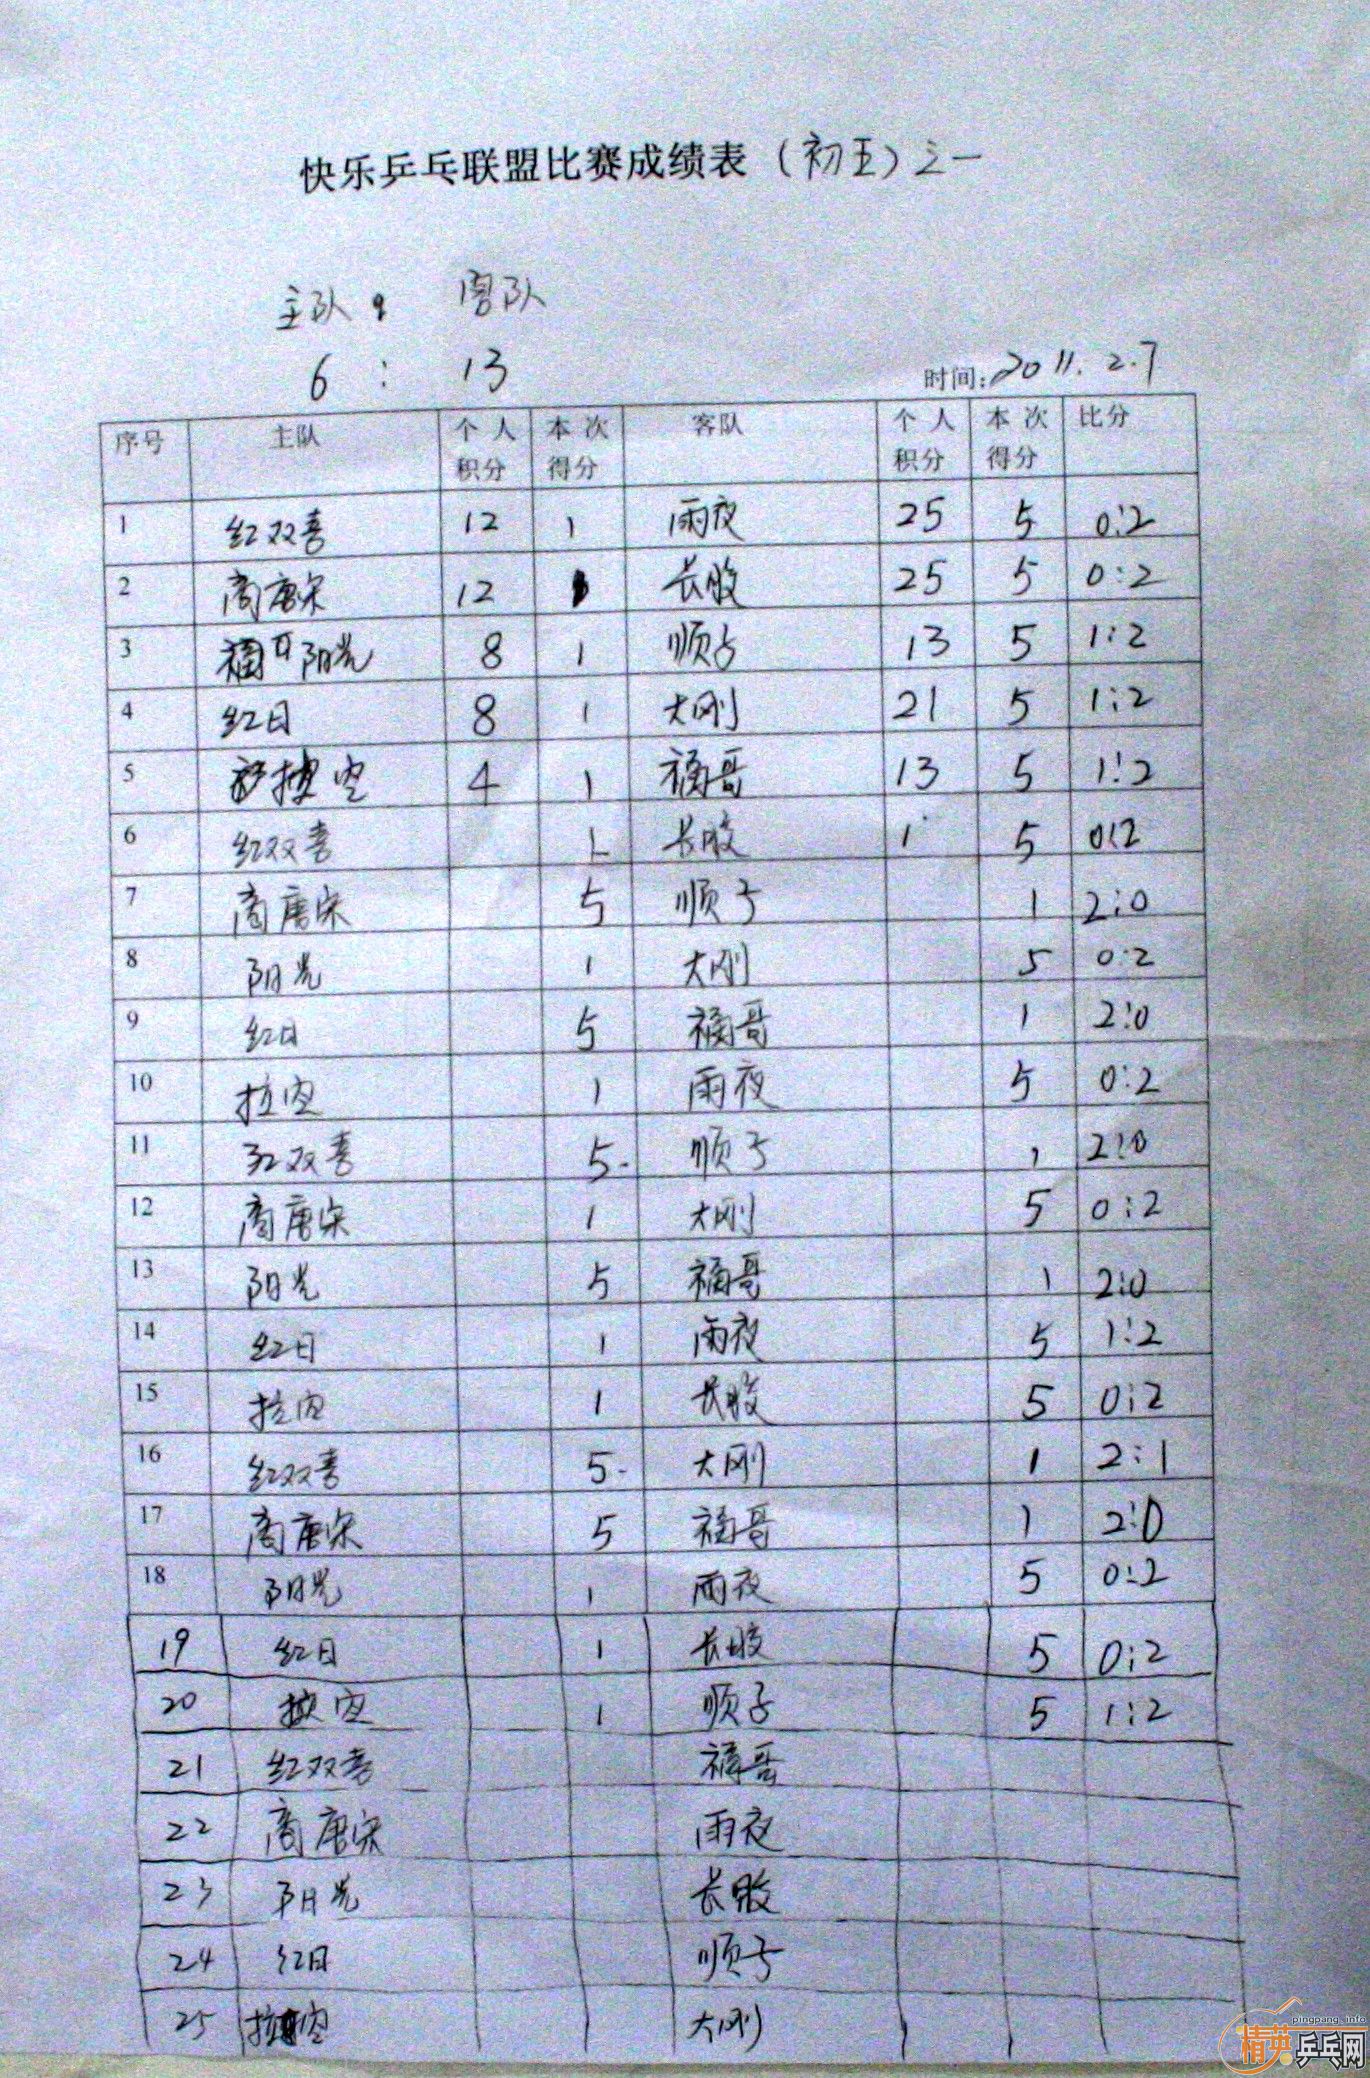 快乐乒乓联盟比赛成绩表（初五）之一
主队： 客队
6 : 13
时间:2011.2.7
序号 主队 个人积分 本次得分 客队 个人积分 本次得分 比分
1 红双喜 12 1 雨夜 25 5 0:2
2 商唐宋 12 1 长胶 25 5 0:2
3 阳光 8 1 顺子 13 5 1:2
4 红日 8 1 大刚 21 5 1:2
5 4 1 福哥 13 5 1:2
6 红双喜 1 长胶 1 5 0:2
7 商唐宋 5 顺子 1 2:0
8 阳光 1 大刚 5 0:2
9 红日 5 福哥 1 2:0
10 1 雨夜 5 0:2
11 红双喜 5 顺子 1 2:0
12 商唐宋 1 大刚 5 0:2
13 阳光 5 福哥 1 2:0
14 红日 1 雨夜 5 1:2
15 1 长胶 5 0:2
16 红双喜 5 大刚 1 2:1
17 商唐宋 5 福哥 1 2:0
18 阳光 1 雨夜 5 0:2
19 红日 1 长胶 5 0:2
20 1 顺子 5 1:2
21 红双喜 福哥
22 商唐宋 雨夜
23 阳光 长胶
24 红日 顺子
25 大刚
pingpang.info
精英乒乓网